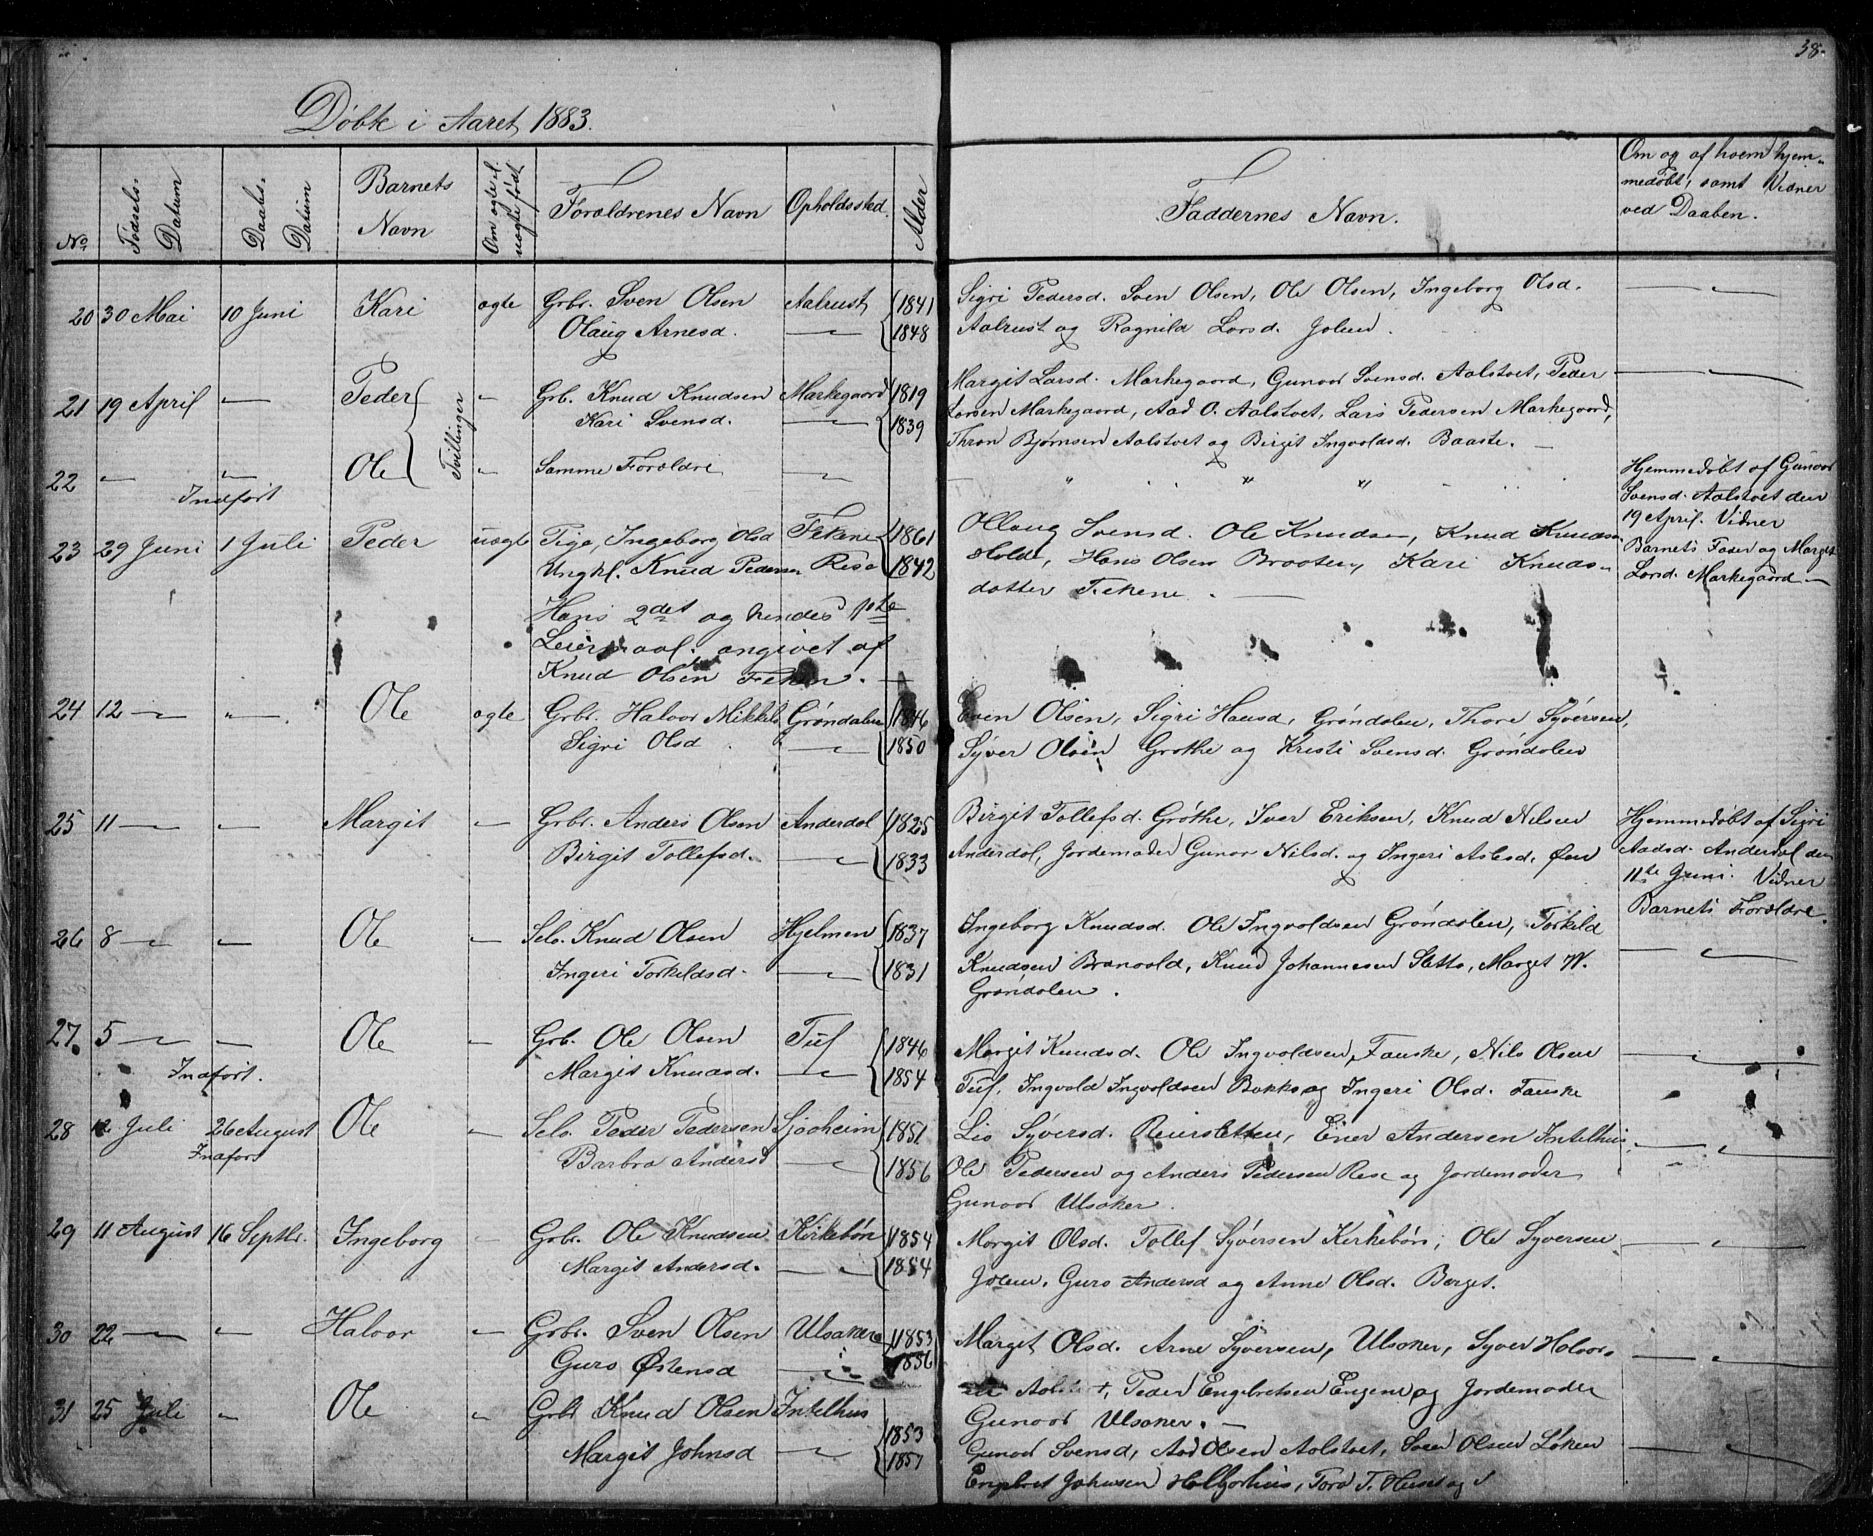 38.
Døbte i Aaret 1883.
No
Fødsels-Datum
Daabs-Datum
Barnets Navn
Om ægte el. uægte født
Forældrenes Navn
Opholdssted.
Alder
Faddernes Navn.
Om og af hvem hjem-
medøbt, samt Vidner
ved Daaben.
20 30 Mai 10 Juni Kari ægte Grbr. Sven Olsen Aalrust 1841 Sigri Pedersd. Sven Olsen, Ole Olsen, Ingeborg Olsd.
Olaug Arnesd. 1848 Aalrust og Ragnild Larsd. Jolun.
21 19 April Peder Tvillinger Grb. Knud Knudsen Markegaard 1819 Margit Larsd. Markegaard, Gunvor Svensd. Aalstvet, Peder
Kari Svensd. 1839 Larsen Markegaard, Aad O. Aalstvet, Lars Pedersen Markegaard,
Thron Bjørnsen Aalstvet og Birgit Ingvoldsd. Baaste.
22 Ole Samme Forældre Hjemmedøbt af Gunvor
Indført Svensd. Aalstvet den
19 April. Vidner
Barnets Fader og Marget
Larsd. Markegaard
23 29 Juni 1 Juli Peder uægte Pige, Ingeborg Olsd Fekene 1861 Ollaug Svensd. Ole Knudsen, Knud Knudsen
Ungkl. Knud Pedersen Rese 1842 Holde, Hans Olsen Braaten, Kari Knuds-
datter Fekene.
Hans 2det og hendes 1ste
Leiermaal. angivet af
Knud Olsen Feken.
24 12 Ole ægte Grbr. Halvor Mikkels Grøndalen 1846 Even Olsen, Sigri Hansd, Grøndalen, Thore Syversen,
Sigri Olsd 1850 Syver Olsen Grøthe og Kristi Svensd. Grøndalen
25 11 Margit Grbr. Anders Olsen Anderdal 1825 Birgit Tollefsd. Grøthe, Iver Eriksen, Knud Nilsen
Birgit Tollefsd. 1833 Anderdal, Jordemoder Gunor Nilsd. og Ingeri Aslesd. Øen
Hjemmedøbt af Sigri
Aadsd. Anderdal den
11te Juni. Vidner
Barnets Forældre.
26 8 Ole Selv. Knud Olsen Hjelmen 1837 Ingeborg Knudsd. Ole Ingvoldsen Grøndalen, Torkild
Ingeri Torkildsd. 1831 Knudsen Branvold, Knud Johannesen Sletto, Marget N.
Grøndalen.
27. 5 Ole Grb. Ole Olsen Tuf 1846 Margit Knudsd. Ole Ingvoldsen, Fauske, Nils Olsen
Indført. Margit Knudsd. 1854 Tuf, Ingvold Ingvoldsen Bakke og Ingeri Olsd. Fauske
28 12 Juli 26 August Ole Selv. Peder Pedersen Sjøheim 1851 Liv Syversd. Reiersletten, Einer Andersen Intelhus
Indført Barbro Andersd 1856 Ole Pedersen og Anders Pedersen Rese og Jordemoder
Gunvor Ulsaker.
29 11 August 16 Septbr. Ingeborg Grbr. Ole Knudsen Kirkebøn 1854 Margit Olsd. Tollef Syversen Kirkebøn, Ole Syversen
Margit Andersd. 1854 Jolun, Guro Andersd og Anne Olsd. Berget.
30 22 Halvor Grbr. Sven Olsen Ulsaker 1853 Marget Olsd. Arne Syversen, Ulsaker, Syver Halvor-
Guro Østensd 1856 sen Peder Engebretsen Engene og Jordemoder
Gunvor Ulsaker.
31 25 Juli Ole Grbr Knud Olsen Intelhus 1853 Gunvor Svensd, Aad Olsen Aalstvet, Sven Olsen Løken
Margit Johnsd 1857 Engebret Johnsen Helljorhus, Tord T. Huse og